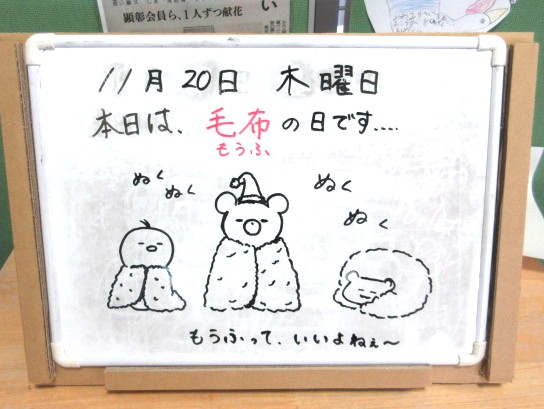 顕彰会員ら、1人ずつ献花
い
11月20日 木曜日
本日は、毛布の日です....
もうふ
ぬく
ぬく
ぬく
ぬく
もうふって、いいよねぇ～